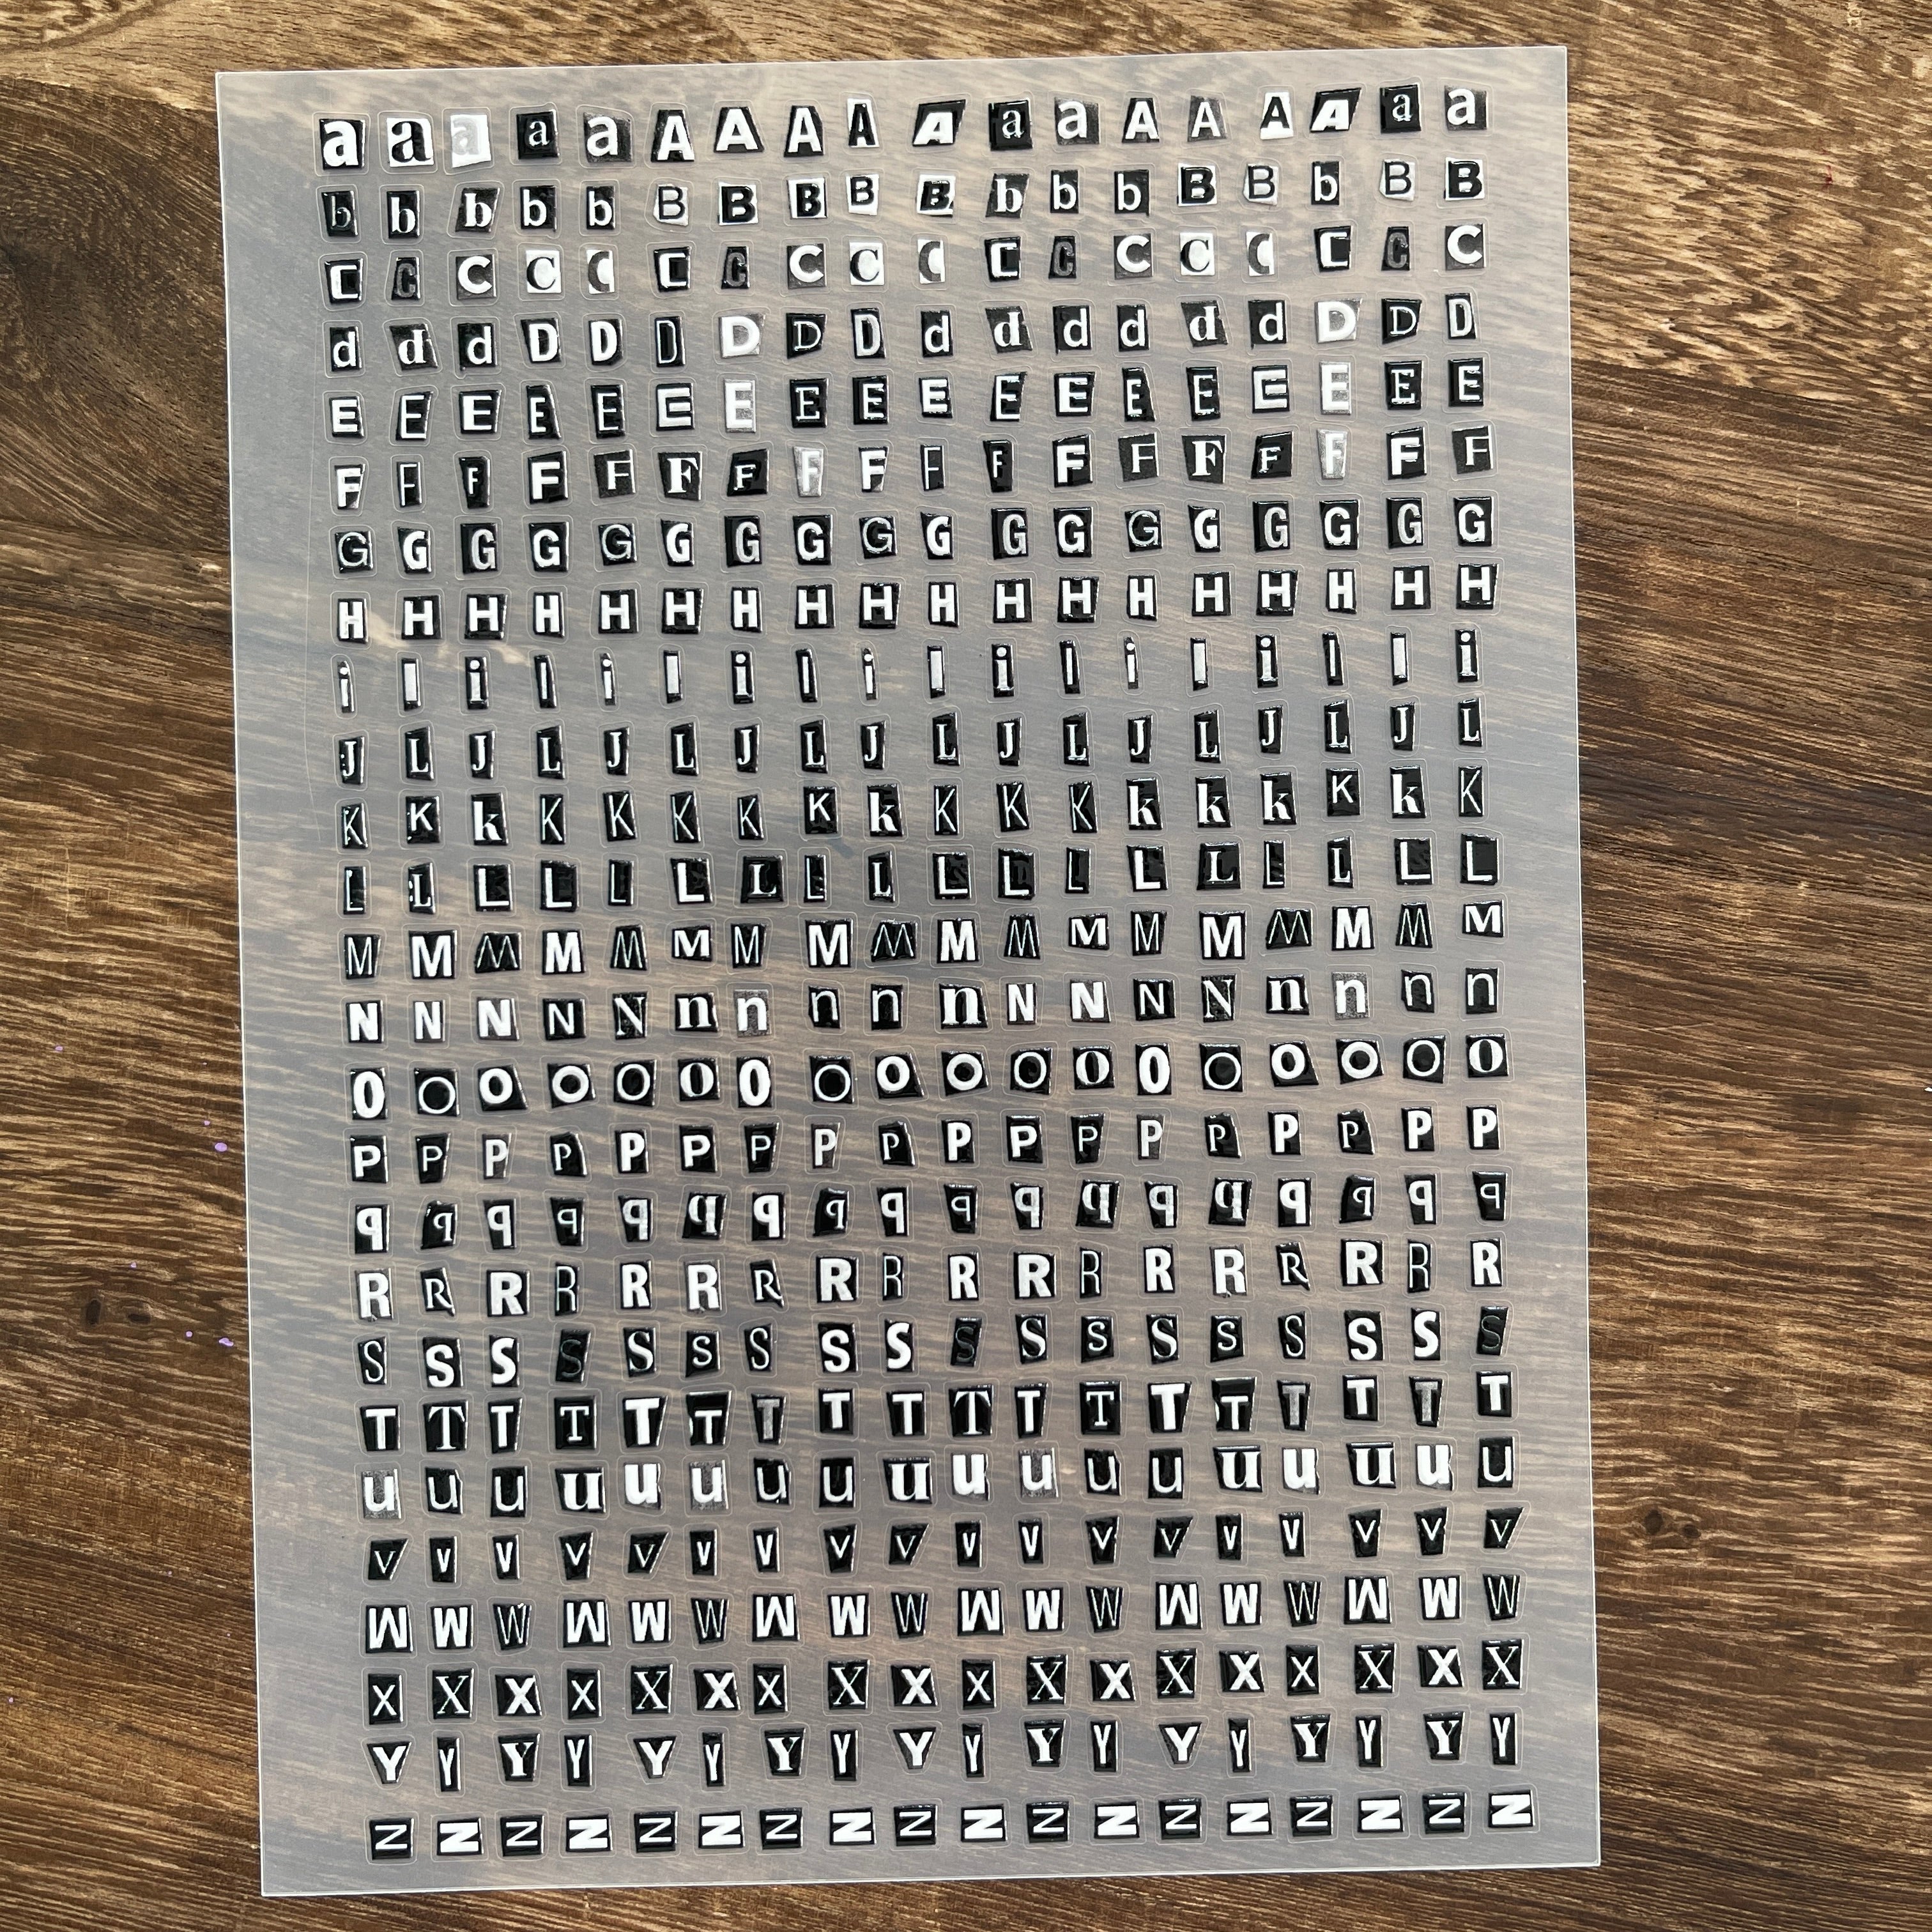 a a a a a A A A A A a a A A A A a a
b b b b b B B B B B b b b B B b B B
C C C C C C C C C C C C C C C C C C
d d d D D D D D D d d d d d d D D D
E E E E E E E E E E E E E E E E E E
F F F F F F F F F F F F F F F F F F
G G G G G G G G G G G G G G G G G G
H H H H H H H H H H H H H H H H H H
i l i l i l i l i l i l i l i l l i
J L J L J L J L J L J L J L J L J L
K K k K K K K K k K K K k k k K k K
L L L L L L L L L L L L L L L L L L
M M M M M M M M M M M M M M M M M M
N N N N N n n n n n N N N N n n n n
O O O O O O O O O O O O O O O O O O
P P P P P P P P P P P P P P P P P P
q q q q q q q q q q q q q q q q q q
R R R R R R R R R R R R R R R R R R
S S S S S S S S S S S S S S S S S S
T T T T T T T T T T T T T T T T T T
u u u u u u u u u u u u u u u u u u
V V V V V V V V V V V V V V V V V V
W W W W W W W W W W W W W W W W W W
X X X X X X X X X X X X X X X X X X
Y Y Y Y Y Y Y Y Y Y Y Y Y Y Y Y Y Y
Z Z Z Z Z Z Z Z Z Z Z Z Z Z Z Z Z Z